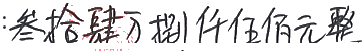 :叁拾肆万捌仟伍佰元整